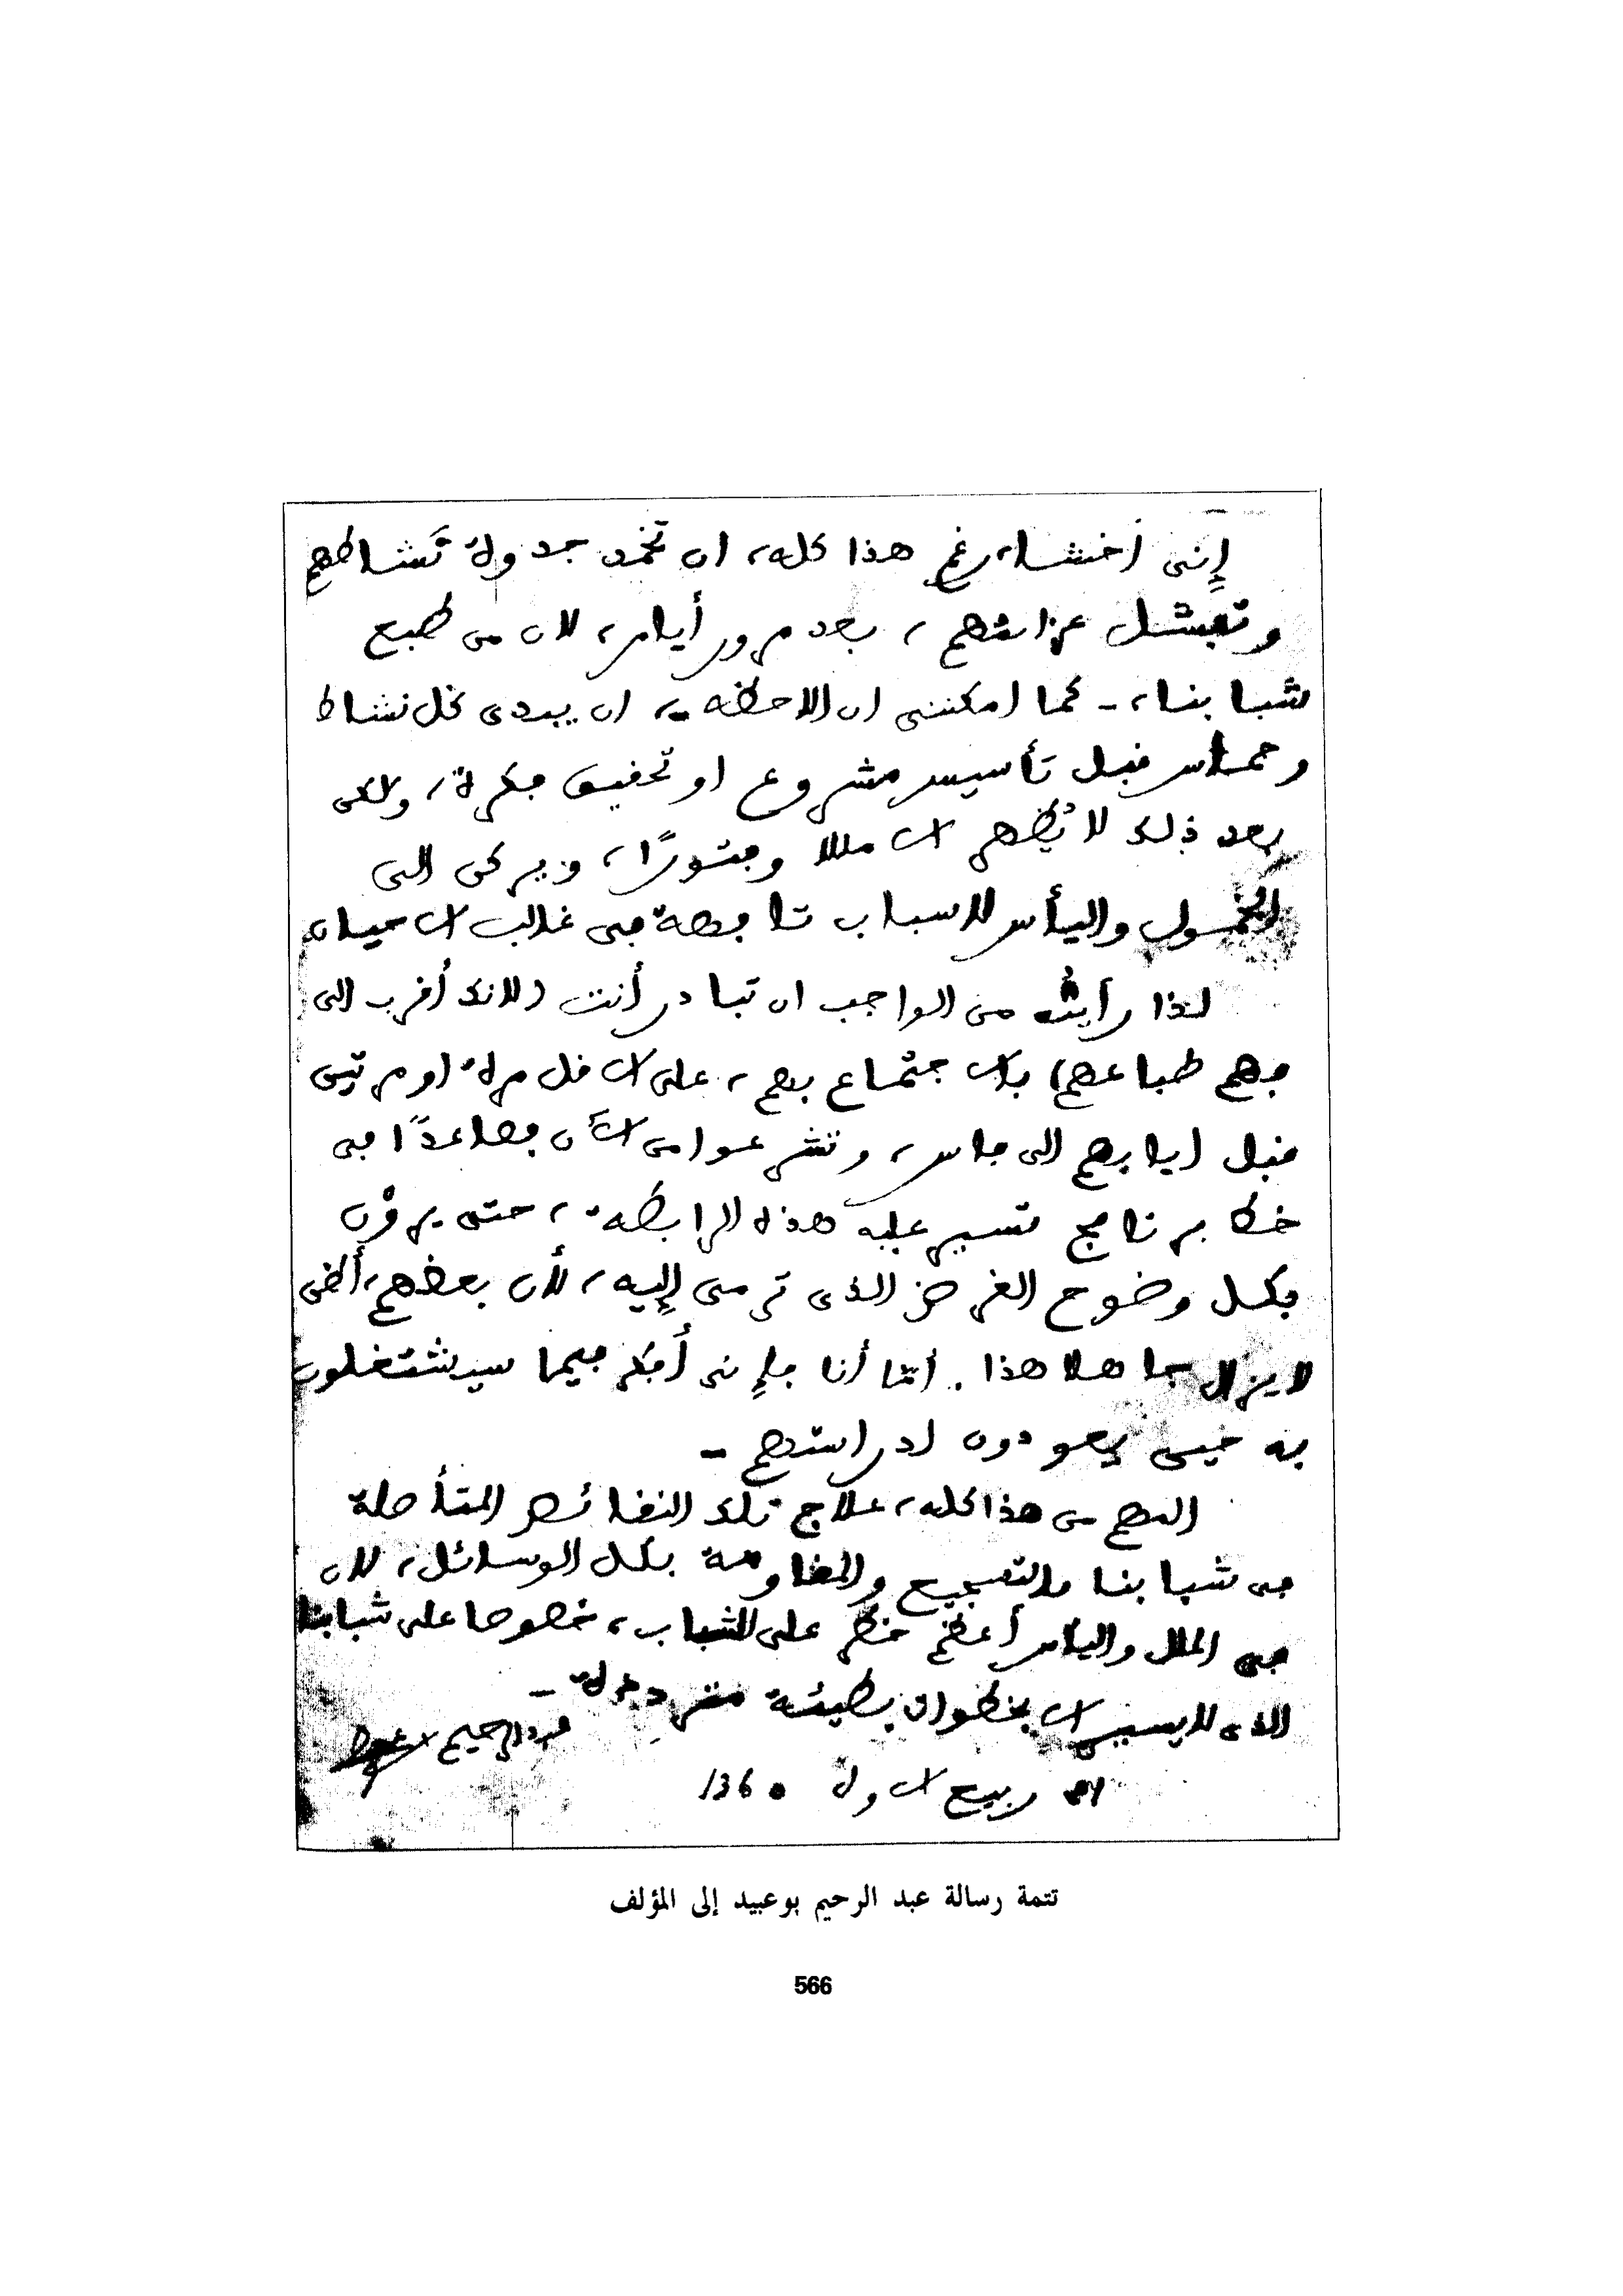 إِنى أخشا، رغم هذا كله، ان تخمد جدوة نَشاطهم
وتفشل عزائمهم، بعد مرور أيام، لان من طبع
شبابنا، - كما امكننى ان الاحظه -، ان يبدى كل نشاط
وحماس قبل تأسيس مشروع او تحقيق فكرة، ولكن
بعد ذلك لا يُظهر الا مللا وفتورًا، ويركن الى
الخمول واليأس لاسباب تافهة فى غالب الاحيان.
لذا رأيتُ من الواجب ان تبادر أنت (لانك أقرب الى
فهم طباعهم) بالاجتماع بهم، على الاقل مرة او مرتين
قبل ايابهم الى فاس، وتشرعوا من الأن فصاعدًا فى
خط برنامج تسير عليه هذه الرابطة، حتى يروْن
بكل وضوح الغرض الذى ترمى إليه، لأن بعضهم، أظن
لا يزال جاهلا هذا. أمّا أنا فإِنى أفكر فيما سيشتغلون
به حين يعودون لدراستهم -
المهم من هذا كله، علاج تلك النقائص المتأصلة
فى شبابنا بالتشجيع والمقاومة بكل الوسائل، لان
فى الملل واليأس أعظم خطر على الشباب، خصوصا على شبابنا
الذى لا يسير الا بخطوات بطيئة مترددة -
عبد الرحيم بوعبيد
ربيع الاول 1360
تتمة رسالة عبد الرحيم بوعبيد إلى المؤلف
566